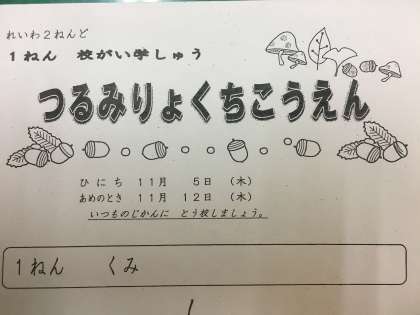 れいわ２ねんど
１ねん　校がい学しゅう
つるみりょくちこうえん
ひにち　１１月　５日　（木）
あめのとき　１１月　１２日　（木）
いつものじかんに　とう校しましょう。
１ねん　　くみ